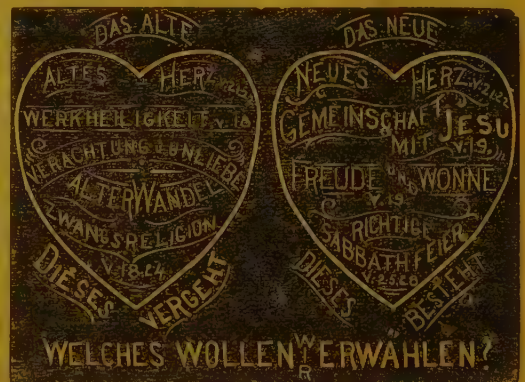 DAS ALTE
ALTES HERZ.V.21.22
WERKHEILIGKEIT.V.18
VERACHTUNG U UNLIEBE
ALTER WANDEL
ZWANGSRELIGION
V.18.24
DIESES VERGEHT
DAS NEUE
NEUES HERZ.V.21.22
GEMEINSCHAFT
MIT JESU
V.19.
FREUDE UND WONNE
V.19
RICHTIGE
SABBATHFEIER
V.25.28
DIESES BESTEHT
WELCHES WOLLEN WIR ERWÄHLEN?